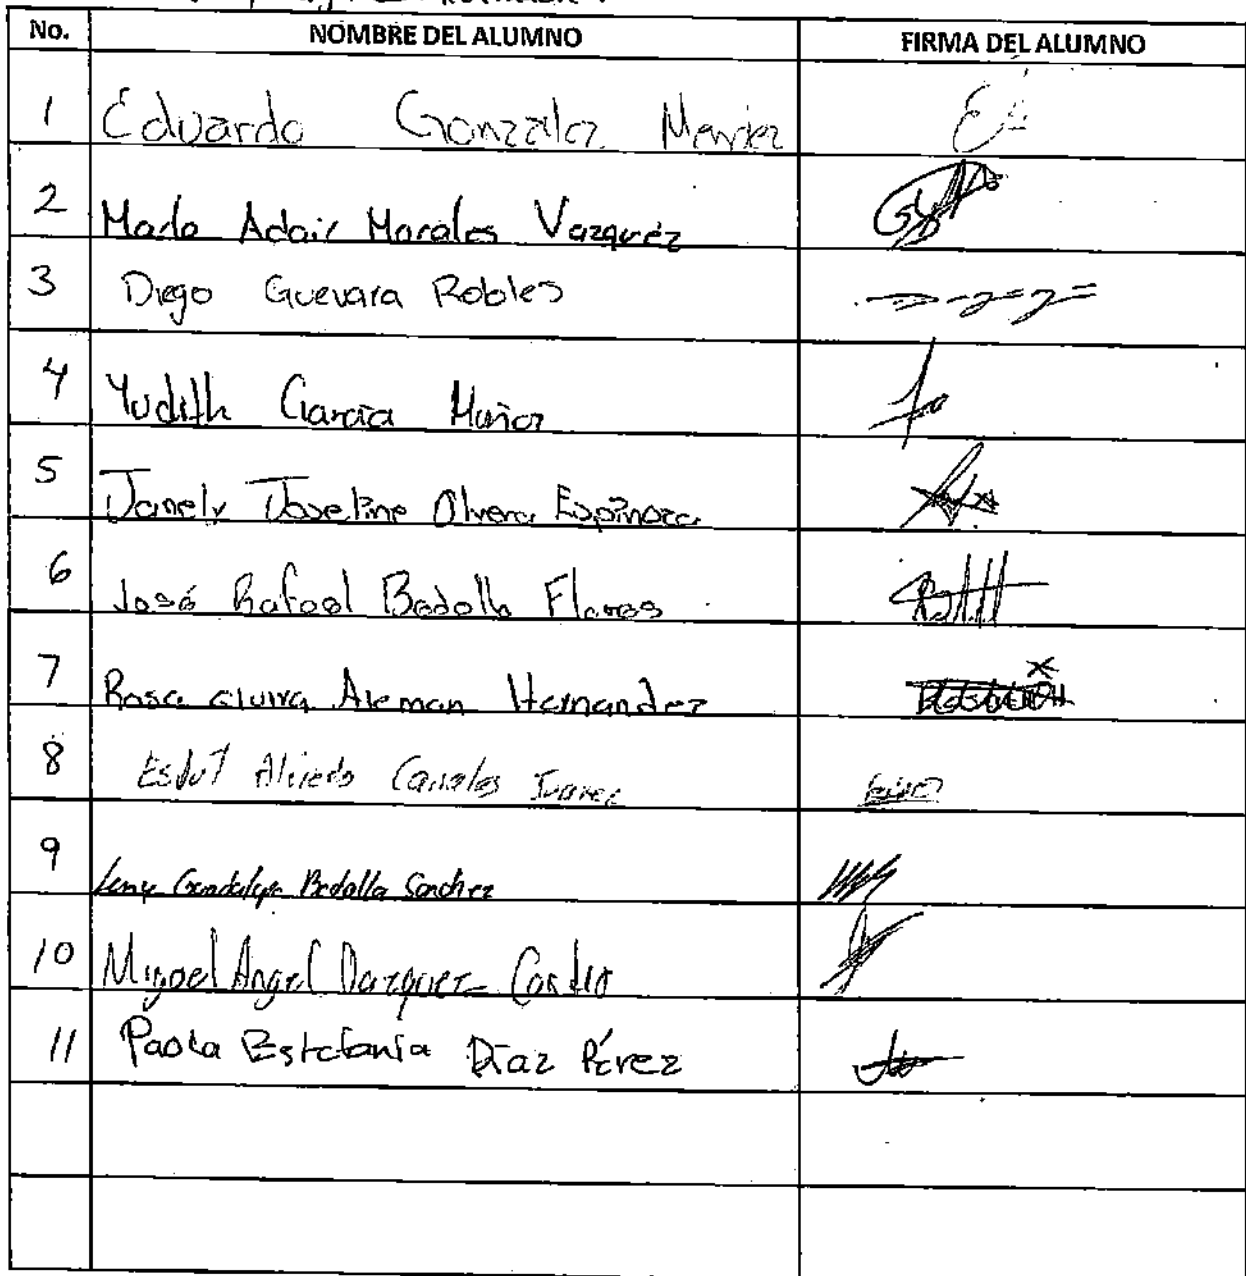 No. NOMBRE DEL ALUMNO FIRMA DEL ALUMNO
1 Eduardo Gonzalez Mendez
2 Mario Adair Morales Vazquez
3 Diego Guevara Robles
4 Yudith Garcia Muñoz
5 Janely Joseline Olvera Espinoza
6 José Rafael Bedolla Flores
7 Rosa elvira Aleman Hernandez
8 Canales Juarez
9 Guadalupe Bedolla Sanchez
10 Miguel Angel Vazquez
11 Paola Estefanía Díaz Pérez